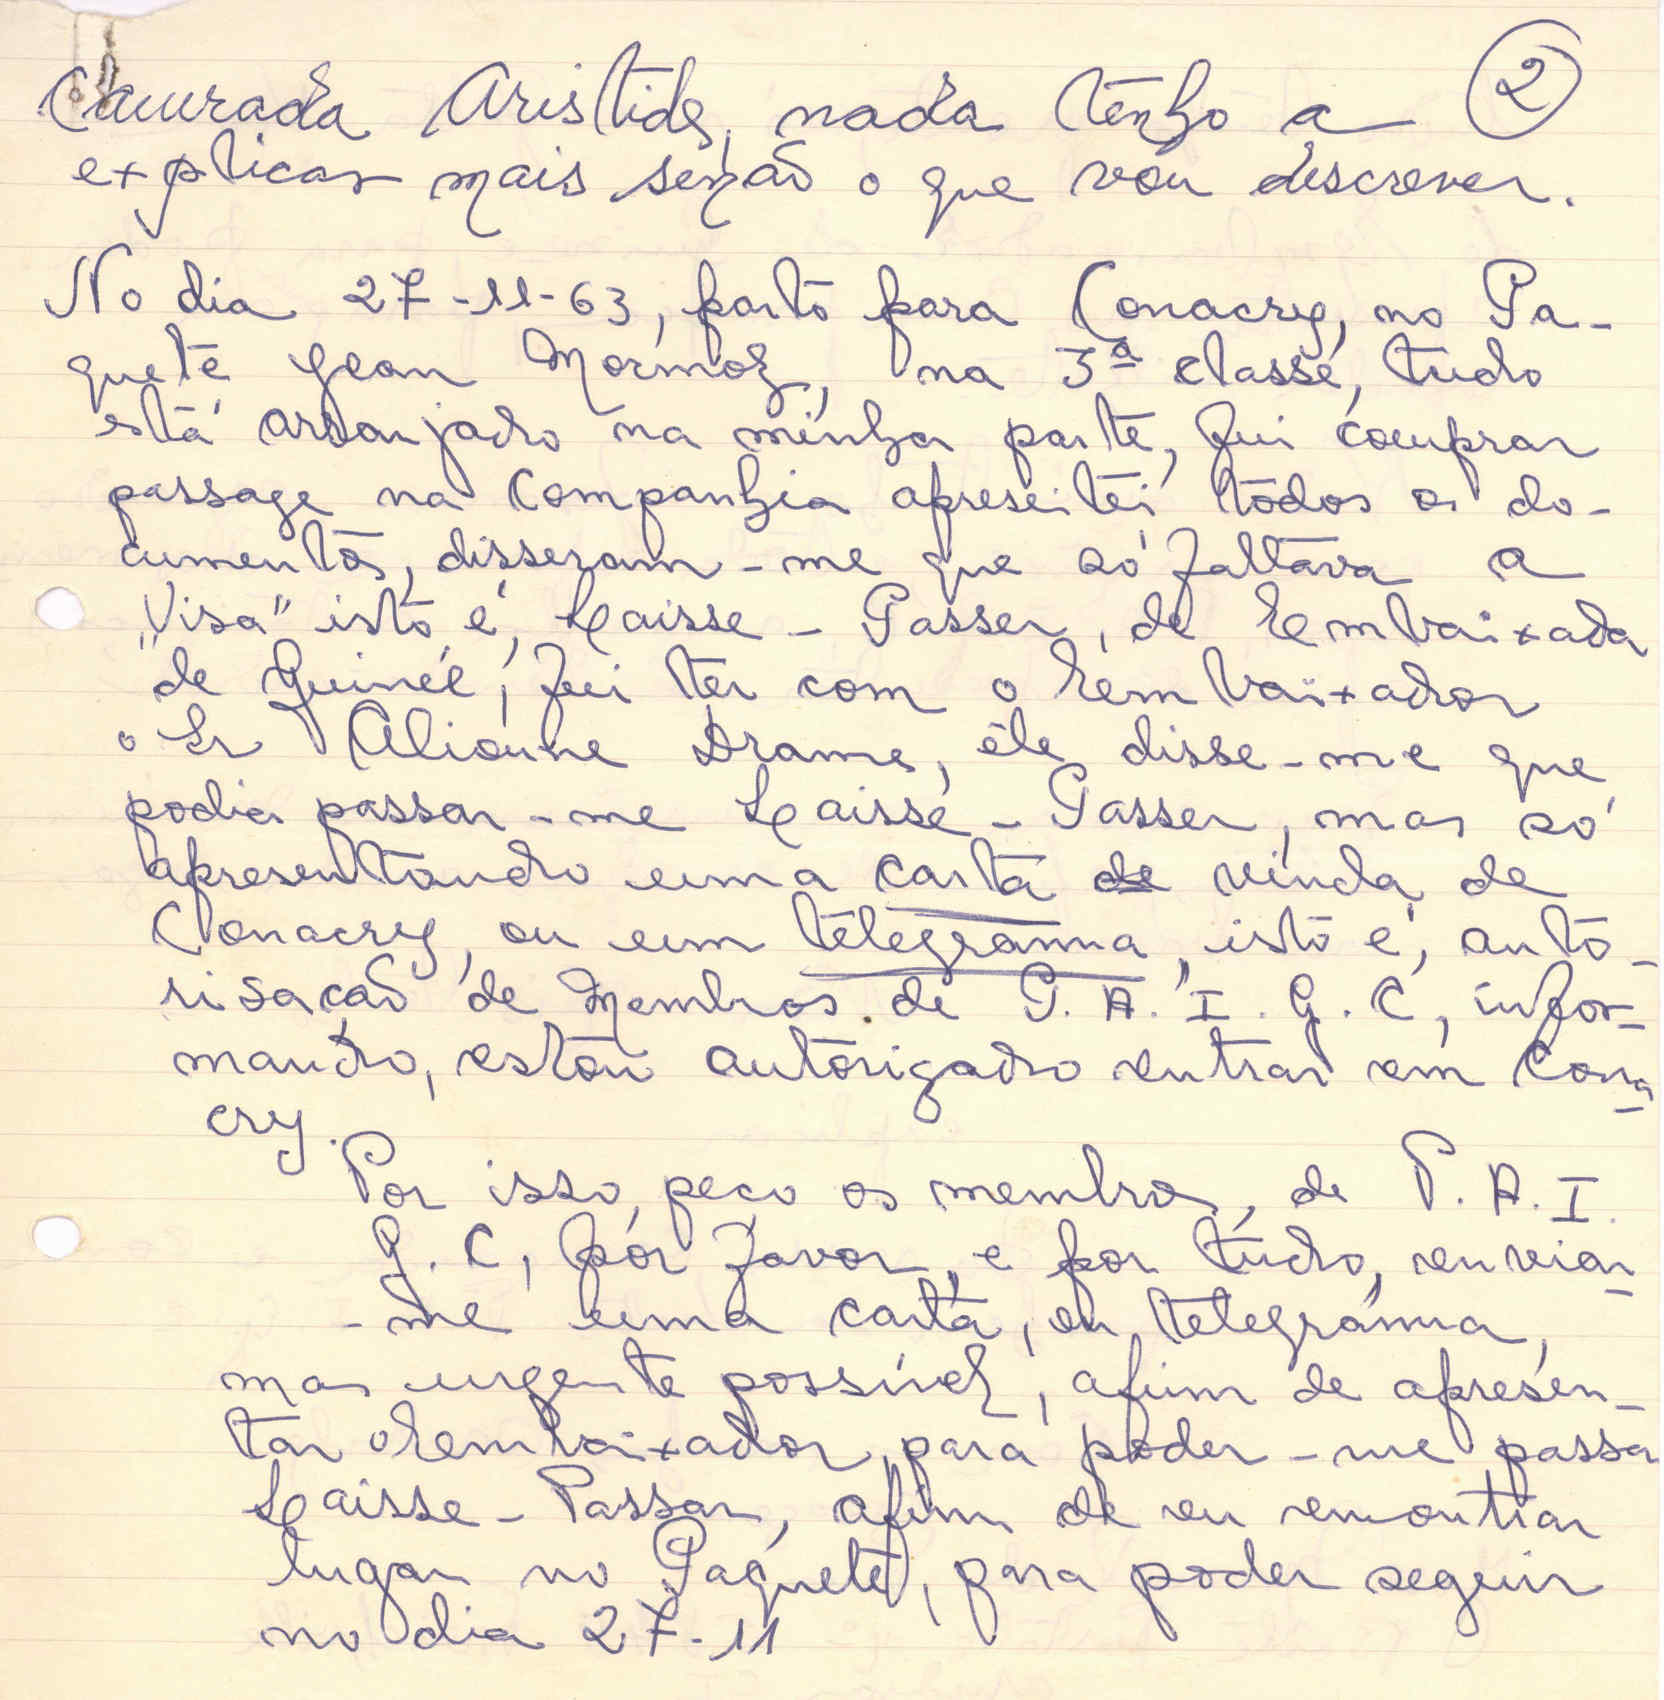 Camrada Aristids, nada tenho a 2
explicar mais senão o que vou descrever.
No dia 27-11-63, parto para Conacry, no Pa-
quete Jean Mormoz, na 3ª classe, tudo
está arranjado na minha parte, fui comprar
passage na Companhia apreseitei todos os do-
cumentos, disseram-me que só faltava a
"Visa" isto é, Laisse-Passer, de Embaixada
de Guinée, fui ter com o Embaixador
o Sr Alioune Drame, êle disse-me que
podia passar-me Laisse-Passer, mas só
apresentando uma carta de vinda de
Conacry, ou um telegrama, isto é, auto-
risacão de Membros de P.A.I.G.C, infor-
mando, estou autorizado entrar em Cona-
cry.
Por isso, peço os membros, de P.A.I.
G.C, por favor, e por tudo, enviar-
-me uma carta, ou telegrama,
mas urgente possivel, afim de apresen-
tar o Embaixador, para poder-me passar
Laisse-Passar, afim de eu encontrar
lugar no Paquete, para poder seguir
no dia 27-11